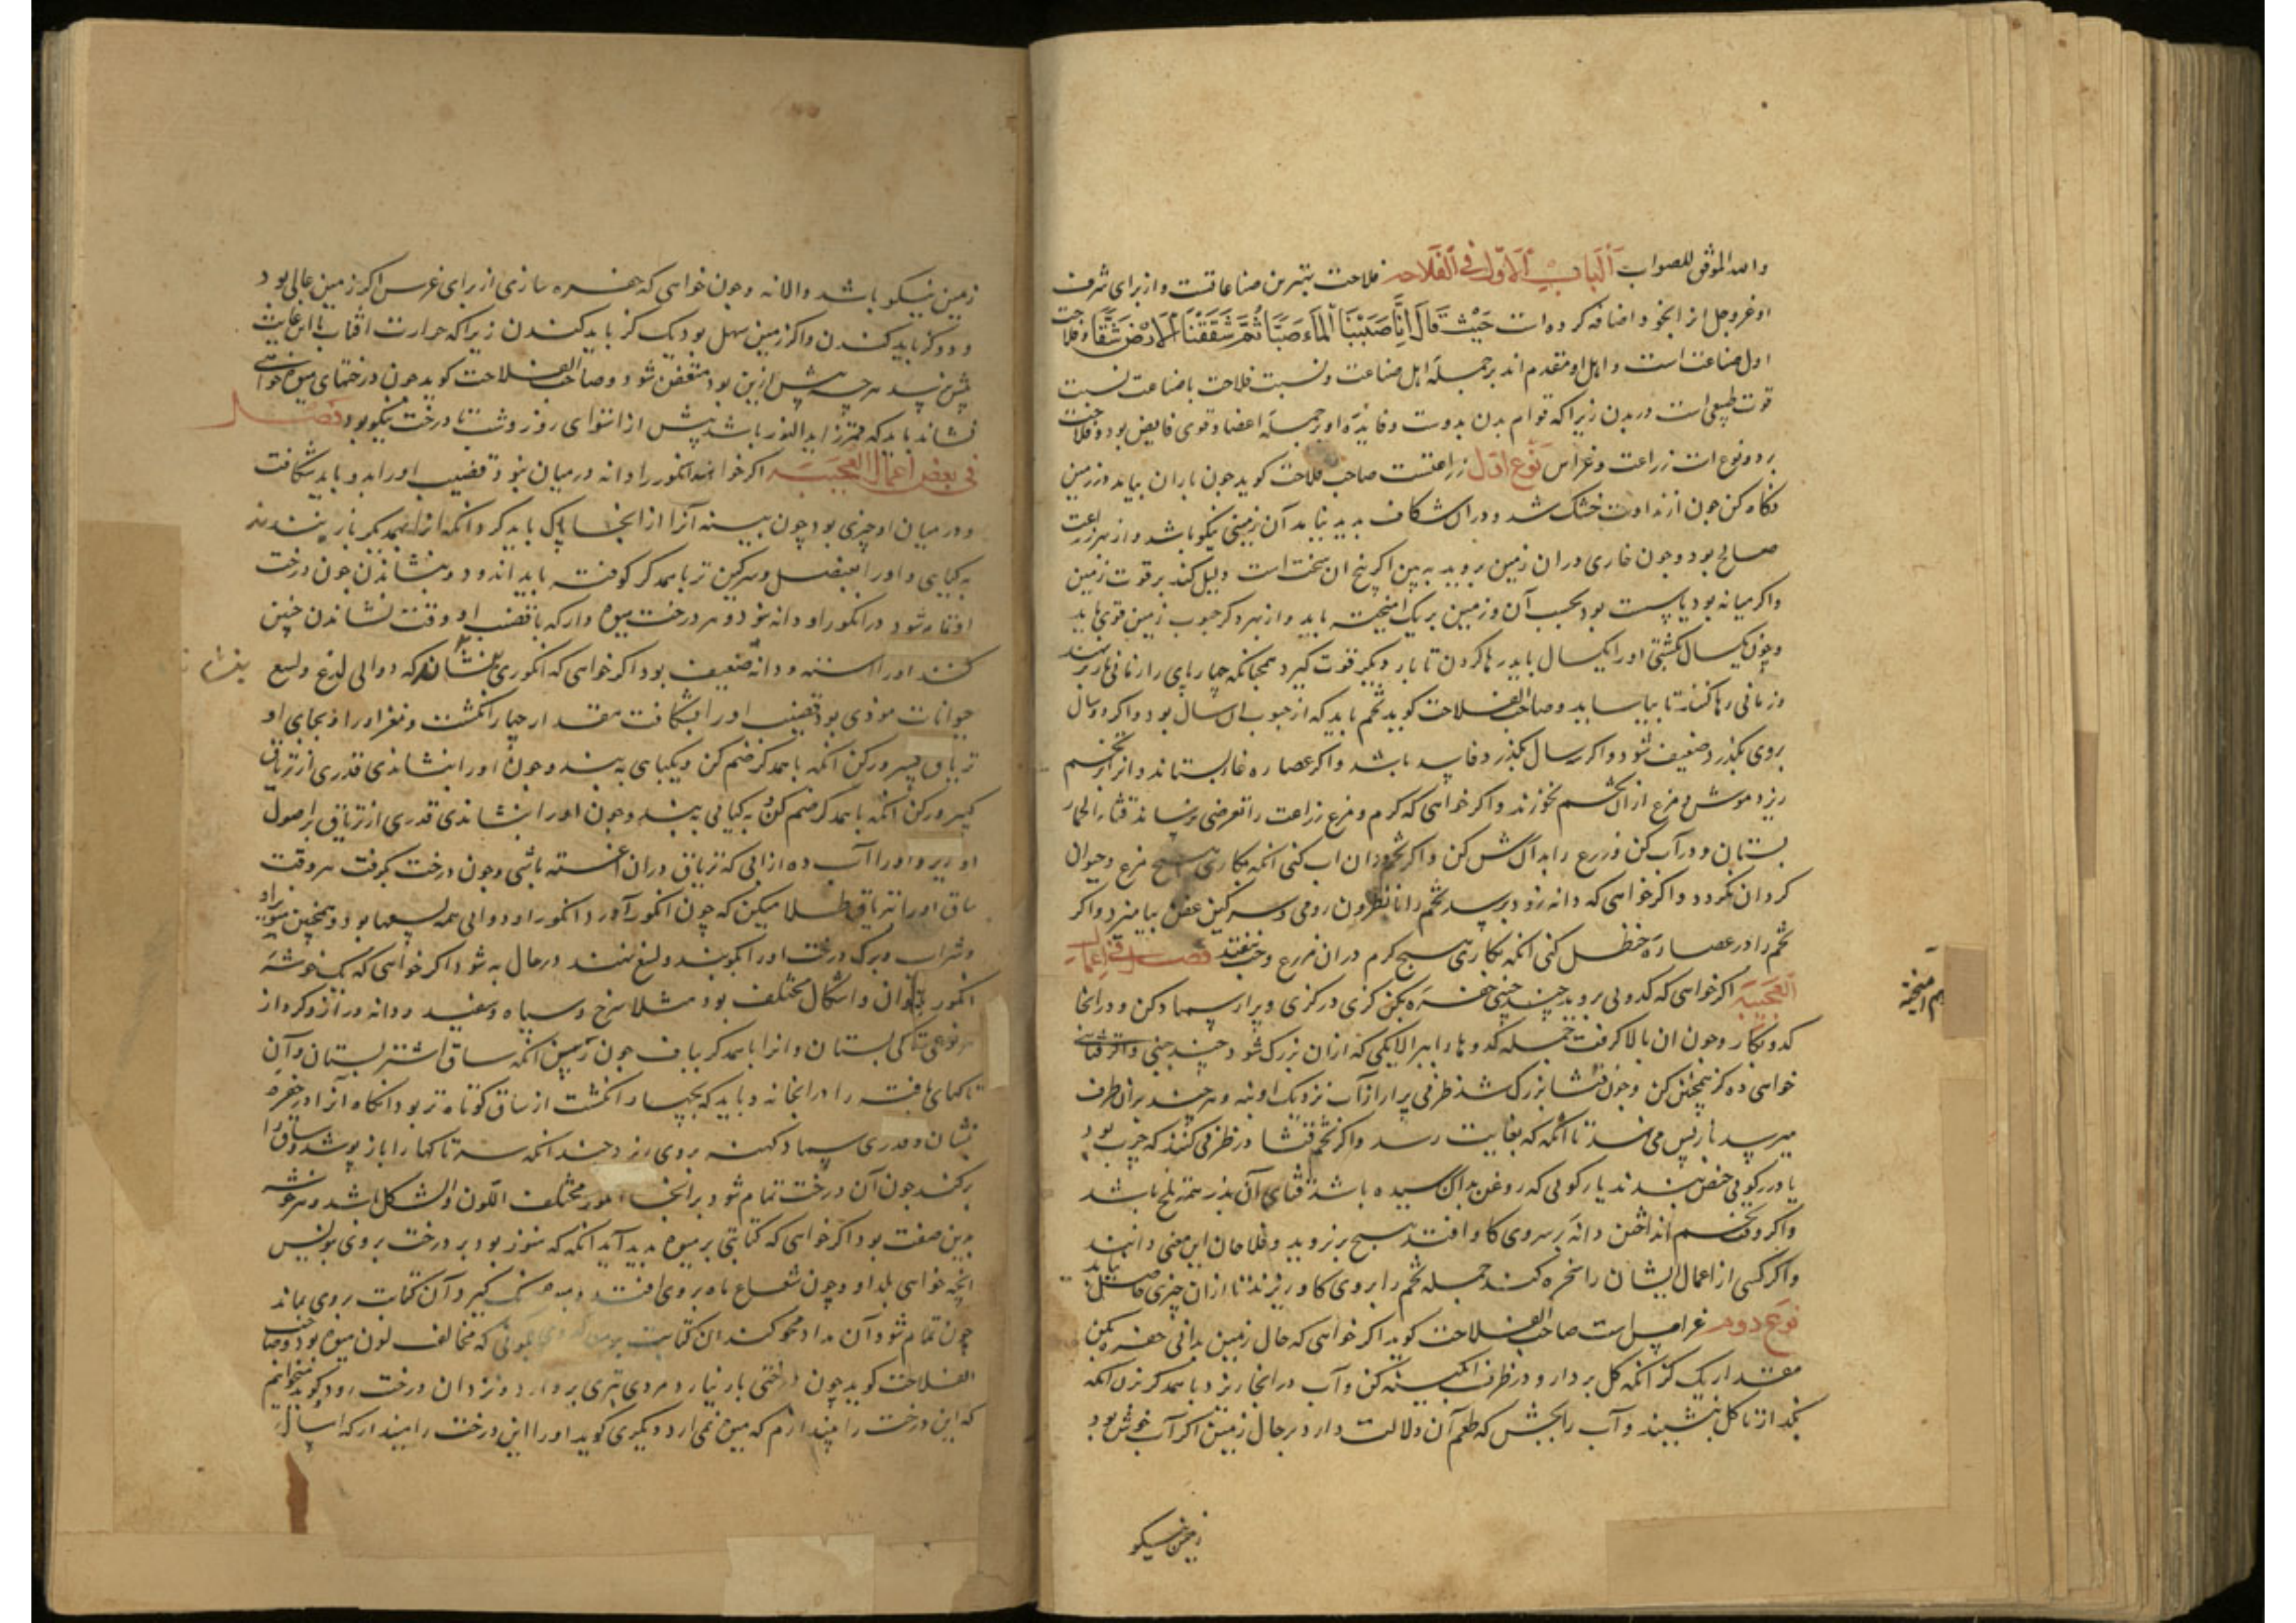 والله الموفق للصواب الباب الاول فی الفلاحه فلاحت بهترین صناعاتست و از برای شرف
او عز و جل از انحو و اضافه کرده است حَیْثُ قَالَ اِنَّا صَبَبْنَا الْمَاءَ صَبًّا ثُمَّ شَقَقْنَا الْاَرْضَ شَقًّا و فلاحت
اول صناعت است و اهل او مقدم اند بر جملهٔ اهل صناعت و نسبت فلاحت با صناعت نسبت
قوت طبیعی است در بدن زیرا که قوام بدن بدوست و فائدهٔ او بر جملهٔ اعضا و قوی فایض بود و فلاحت
بر دو نوع است زراعت و غراس نوع اول زراعتست صاحب فلاحت کوید جون باران بیاید در زمین
نکاه کن جون از نداوت خشک شد و در ان شکاف بدید نیاید آن زمینی نیکو باشد و از بهر زراعت
صالح بود و جون خاری در ان زمین بروید به بین اکر بیخ ان سخت است دلیل کند بر قوت زمین
و اکر میانه بود یا پست بود بحسب آن و زمین بریک امیخته باید و از بهر دکر حبوب زمین قوی باید
و چون یکسال بکشتی او را یکسال باید رها کردن تا بار دیکر قوت کیرد همجنانکه چهارپای را زمانی بار برنهند
و زمانی رها کنند تا بیاساید و صاحب الفلاحت کوید تخم باید که از حبوب ان سال بود و اکر دو سال
بروی بکذرد ضعیف شود و اکر سه سال بکذرد فاسد باشد و اکر عصاره غار بستاند و انرا بر تخم
ریزد موش و مرغ از ان تخم نخورند و اکر خواهی که کرم و مرغ زراعت را تعرضی نرساند قثاء الحمار
بستان و در آب کن و زرع را بدان آب رش کن و اکر تخم در ان اب کنی انکه بکاری هیچ مرغ و حیوان
کرد ان نکردد و اکر خواهی که دانه زود برسد تخم را با نطرون رومی و سرکین عفن بیامیز و اکر
تخم را در عصارهٔ حنظل کنی انکه بکاری هیچ کرم در ان مزرع و حب نیفتد فصل فی اعمال
العجیبة اکر خواهی که کدوئی بروید چند خمی حفره بکن کزی در کزی و پر از سماد کن و در انجا
کدو بکار و جون ان بالا کرفت جمله کدوها را ببر الا یکی که از ان بزرک شود چند خمی و اکر قثائی
خواهی ده کز همچنین کن و چون قثا بزرک شد ظرفی پر از آب نزدیک او بنه و هر چند بر ان طرف
میرسد بازپس می نه تا انکه که بغایت رسد و اکر تخم قثا در ظرفی کنند که چرب بود
یا در رکوی حیض بندند یا رکوئی که روغن بدان رسیده باشد قثای آن بذر همه تلخ باشد
و اکر وقت تخم انداختن دانه بر سروی کاو افتد هیچ بر نروید و فلاحان این معنی دانند
و اکر کسی از اعمال ایشان را سخره کند جمله تخم را بر وی کاو ریزند تا از ان چیزی حاصل نیاید
نوع دوم غراس است صاحب الفلاحت کوید اکر خواهی که حال زمین بدانی حفره بکن
مقدار یک کز انکه کل بردار و در ظرف آبکینه کن و آب در انجا ریز و با همدکر بزن انکه
بکذار تا کل بنشیند و آب را بچش که طعم آن دلالت دارد بر حال زمین اکر آب خوش بود
زمین نیکو
هم امیخته
زمین نیکو باشد والا نه و جون خواهی که حفره سازی از برای غرس اکر زمین عالی بود
دو کز باید کندن و اکر زمین سهل بود یک کز باید کندن زیرا که حرارت افتاب تا این غایت
بیش نرسد هر چه بیش ازین بود متعفن شود و صاحب الفلاحت کوید جون درختهای میوه خواهی
نشاند باید که قمر زاید النور باشد پیش از استوای روز و شب تا درخت نیکو بود فصل
فی بعض اعمال العجیبة اکر خواهند انکور را دانه در میان نبود قضیب او را بدو باید شکافت
و در میان او چیزی بود چون پنبه آنرا از انجا پاک باید کرد و انکه انرا بهمدیکر باز بندند
به کیاهی و او را بعنصل و سرکین تر با همدکر کوفته باید اندود و بنشاندن جون درخت
در انکور او دانه نبود و هر درخت میوه دار که با قضیب او وقت نشاندن چنین
کنند او را استه و دانه ضعیف بود اکر خواهی که انکوری بنشاند که دوالی لدغ و لسع
بنشانی
حیوانات موذی بود قضیب او را بشکافت مقدار چهار انکشت و مغز او را و بجای او
تریاق کبیر ورکن انکه با همدکر ضم کن و بکیاهی به بند و چون او را بنشاندی قدری از تریاق
کبیر ورکن انکه با همدکر ضم کن و به کیائی به بند و چون او را بنشاندی قدری از تریاق بر اصول
او ریز و او را آب ده از ابی که تریاق در ان اغشته باشی و چون درخت بکرفت هر وقت
ساق او را بتریاق طلا میکن که چون انکور آورد انکور او دوای همه لسعها بود و همچنین مویز او
و شراب و برک درخت او را بکوبند و بر لسع نهند در حال به شود اکر خواهی که یک خوشه
انکور بالوان و اشکال مختلف بود مثلا سرخ و سیاه و سفید و دانه دراز و کرد از
هر نوعی تاکی بستان و انرا با همدکر بباف جون آنکه ساق استر بستان و آن
تاکهای بافته را در انجا نه و باید که بچهار انکشت از ساق کوتاه تر بود انکاه آنرا در حفره
نشان و قدری سماد کهنه بروی ریز چندانکه سر تاکها را باز پوشد و ساق را
برکند جون آن درخت تمام شود بر انجا انکور مختلف اللون والشکل باشد و هر خوشه
بدین صفت بود اکر خواهی که کتابتی بر میوه پدید آید انکه که سبز بود بر درخت بروی نویس
انچه خواهی بمداد و چون شعاع ماه بروی افتد و رنک کیرد آن کتابت بروی بماند
چون تمام شود آن مداد محو کند ان کتابت بلونی که مخالف لون میوه بود و صاحب
الفلاحت کوید چون درختی بار نیارد مردی تبری بردارد و نزد ان درخت رود کوید میخواهم
که این درخت را بیندازم که میوه نمی ارد دیکری کوید او را این درخت را مینداز که امسال